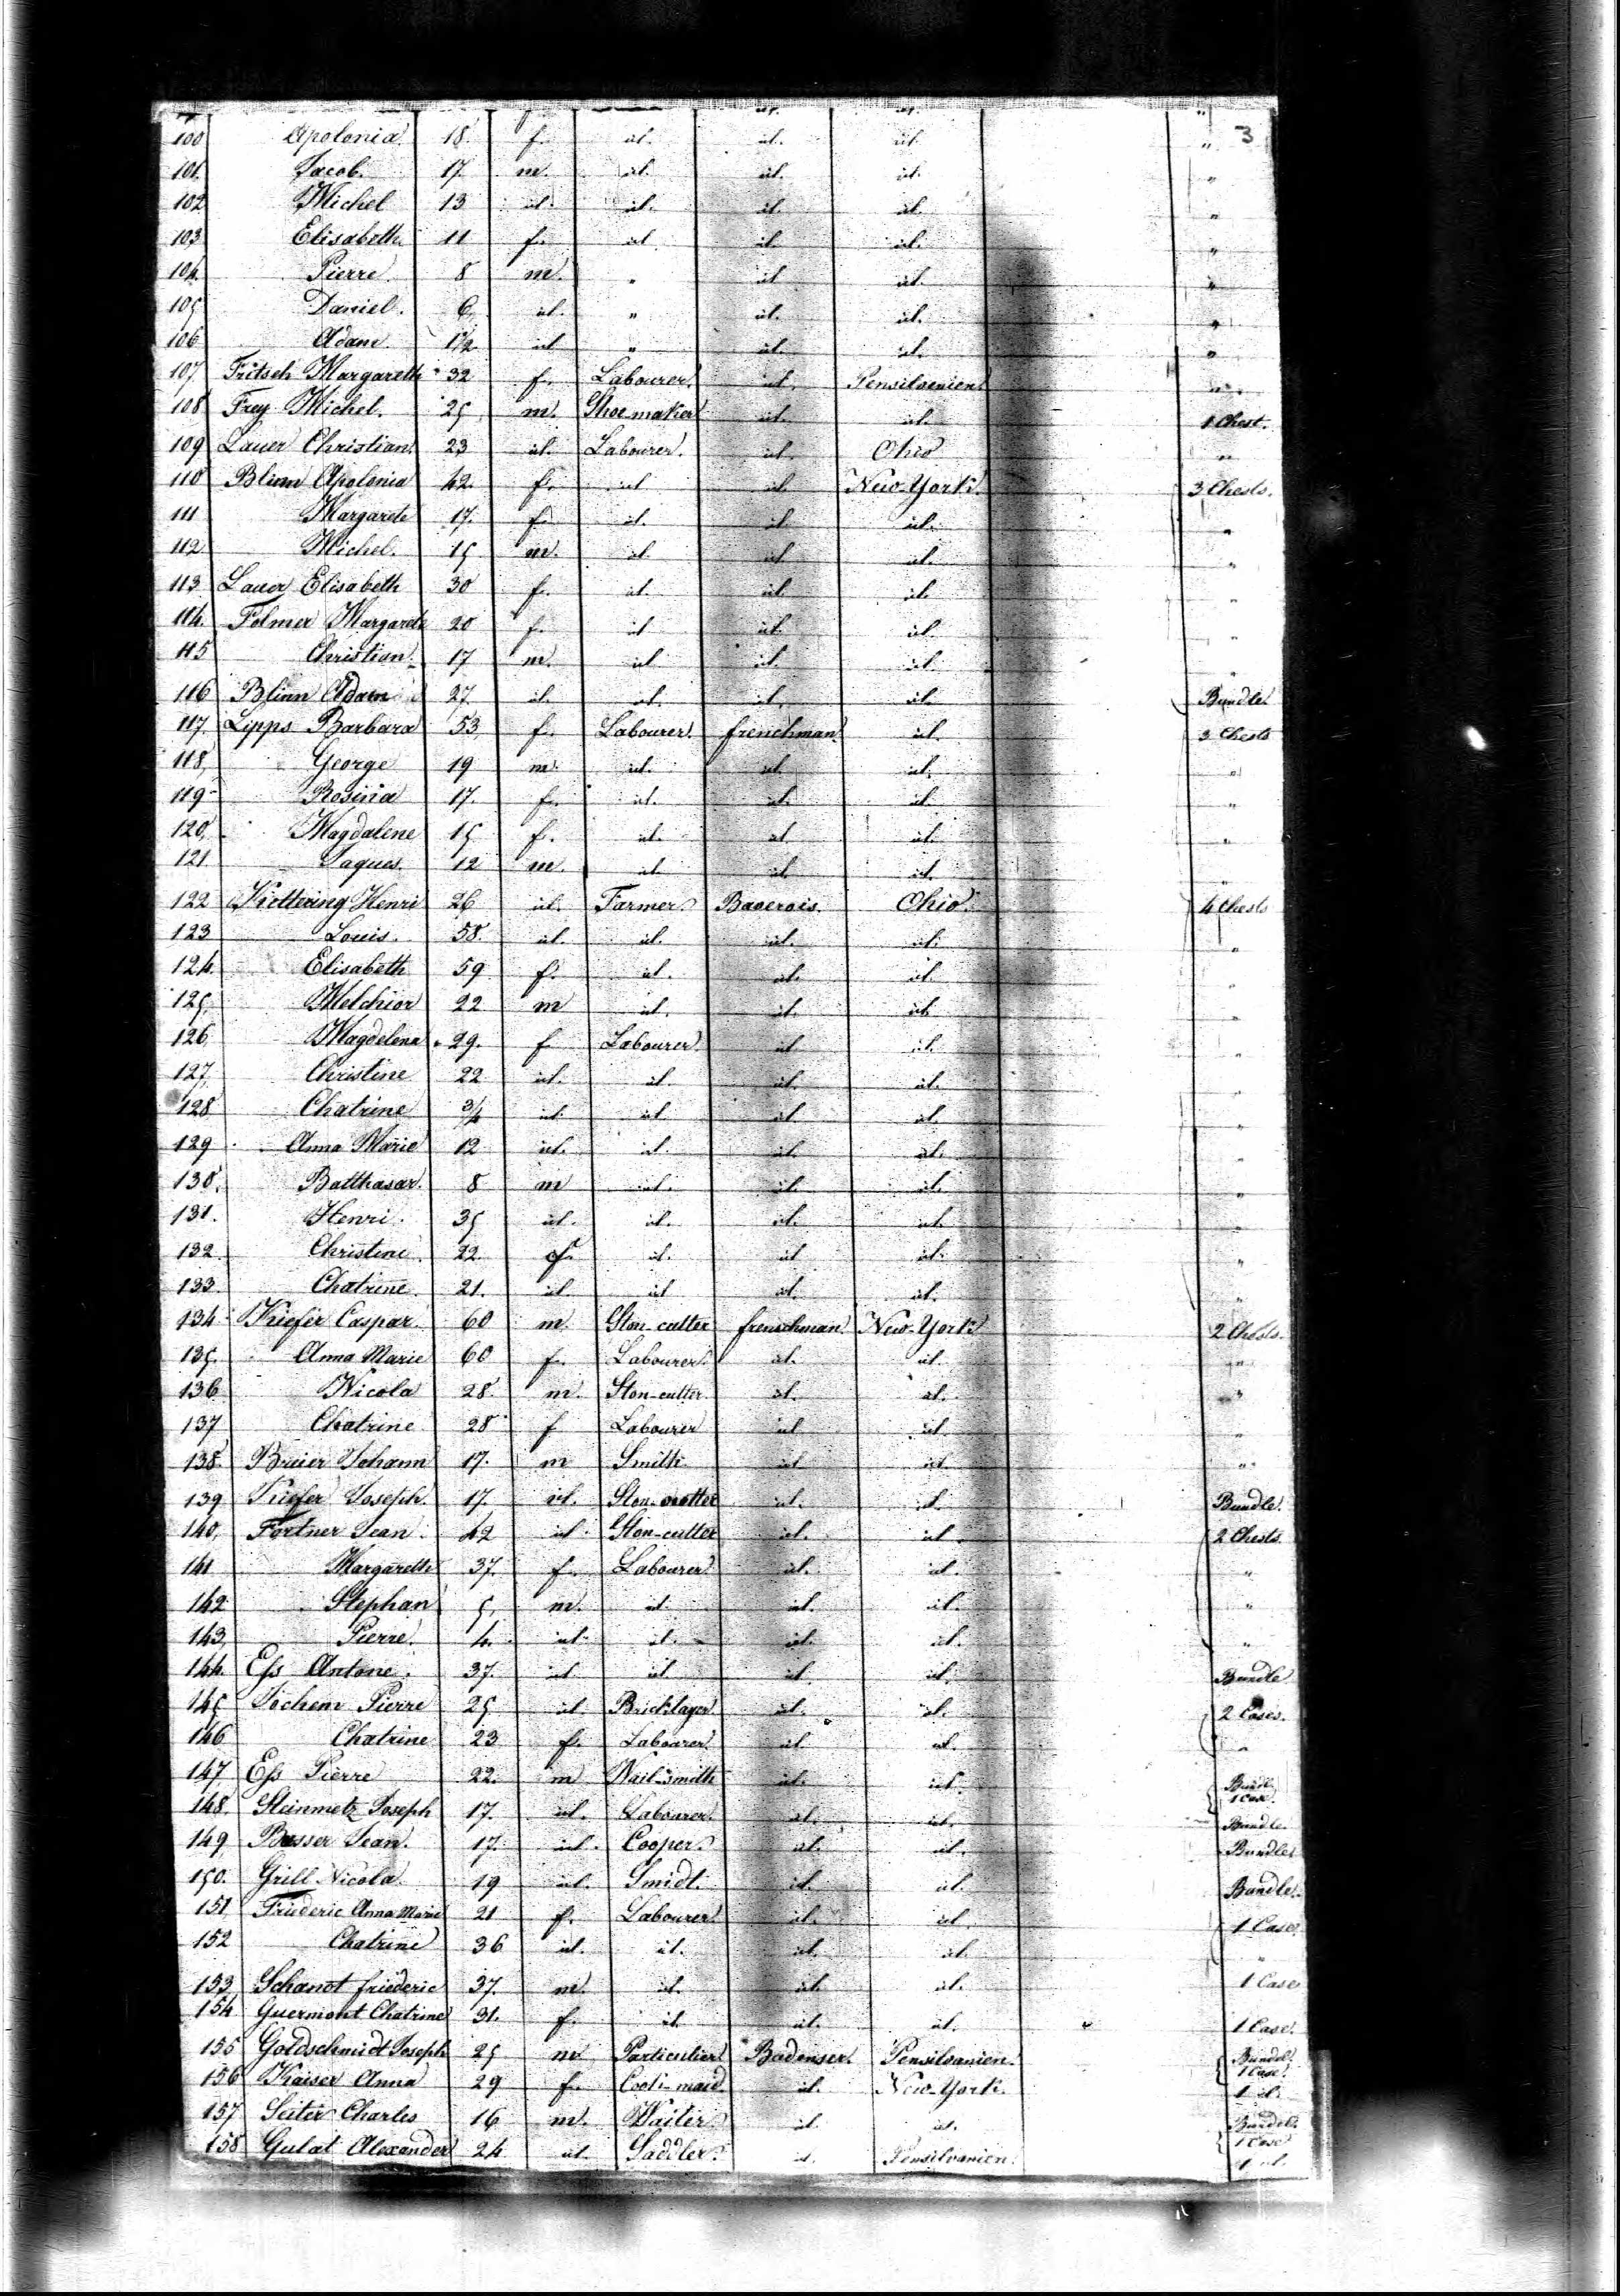 3
100 Apolonia 18. f. id. id. id. "
101. Jacob. 17. m. id. id. id. "
102 Michel 13 id. id. id. id. "
103 Elisabeth 11 f. id id. id. "
104. Pierre 8 m. " id id. "
105 Daniel. 6. id. " id. id. "
106 Adam 1 1/2 id " id. id. "
107 Fritsch Margareth 32 f. Labourer. id. Pensilvanien. "
108 Frey Michel. 25 m. Shoe-maker id. id. 1 Chest.
109 Lauer Christian. 23 id. Labourer. id. Ohio "
110 Blinn Apolonia 42. f. id id New-York. 3 Chests.
111 Margarete 17. f. id. id id. "
112 Michel. 15. m. id. id id. "
113. Lauer Elisabeth 30 f. id. id. id. "
114. Folmer Margarete 20 f. id id. id. "
115 Christian 17 m. id id. id. "
116 Blinn Adam 27. id. id. id. id. Bundle.
117. Lipps Barbara 53 f. Labourer. frenchman. id. 3 Chests
118. George 19 m. id. id id. "
119 Rosina 17. f. id. id. id "
120. Magdalene 15 f. id. id id. "
121 Jaques 12 m. id. id id. "
122 Kiettering Henri 26 id. Farmer. Baverois. Ohio. 4 Chests
123 Louis. 58. id. id. id. id. "
124. Elisabeth 59 f. id. id. id "
125. Melchior 22 m id. id. id. "
126. Magdelena 29. f Labourer id id. "
127. Christine 22 id. id. id. id. "
128 Chatrine 3/4 id. id id id. "
129 Anna Marie 12 id. id. id id. "
130. Batthasar. 8 m id. id. id. "
131. Henri. 35 id. id. id. id. "
132. Christine. 22. f. id. id id. "
133. Chatrine. 21. id id id. id. "
134 Kiefer Caspar. 60 m. Ston-cutter frenchman New-York 2 Chests.
135. Anna Marie 60 f. Labourer. id. id. "
136 Nicola 28. m. Ston-cutter id. id. "
137 Chatrine 28 f Labourer id id. "
138. Breier Johann 17. m Smith id id. "
139 Kiefer Joseph. 17. id. Ston-cutter id. id. Bundle.
140. Fortner Jean. 42 id. Ston-cutter id. id. 2 Chests.
141 Margareth 37. f. Labourer id. id. "
142 Stephan 5. m. id id. id. "
143. Pierre. 4. id. id. id. id. "
144. Eſs Antone. 37. id id id. id. Bundle
145 Jochem Pierre 25 id Bricklayer id. id. 2 Cases.
146 Chatrine 23 f. Labourer id. id. "
147. Eſs Pierre 22. m Nail-smith id. id. Bundle 1 Case.
148. Steinmetz Joseph 17. id. Labourer id. id. Bundle.
149 Basser Jean. 17. id. Cooper. id. id. Bundle
150. Grill Nicola. 19 id. Smidt. id. id. Bundle.
151 Friederic Anna Marie 21 f. Labourer id. id. 1 Case
152 Chatrine 36 id. id. id. id. "
153 Schanot friederic 37. m. id. id. id. 1 Case
154 Guermont Chatrine 31. f. id. id. id. 1 Case.
155 Goldschmidt Joseph 25 m Particulier Badenser. Pensilvanien. Bundel. 1 Case.
156 Kaiser Anna 29 f. Cook-maid id. New-York. 1 id.
157 Seiter Charles 16 m. Waiter. id. id. Bundel. 1 Case
158 Gulat Alexander 24 id. Saddler. id. Pensilvanien. 1 id.